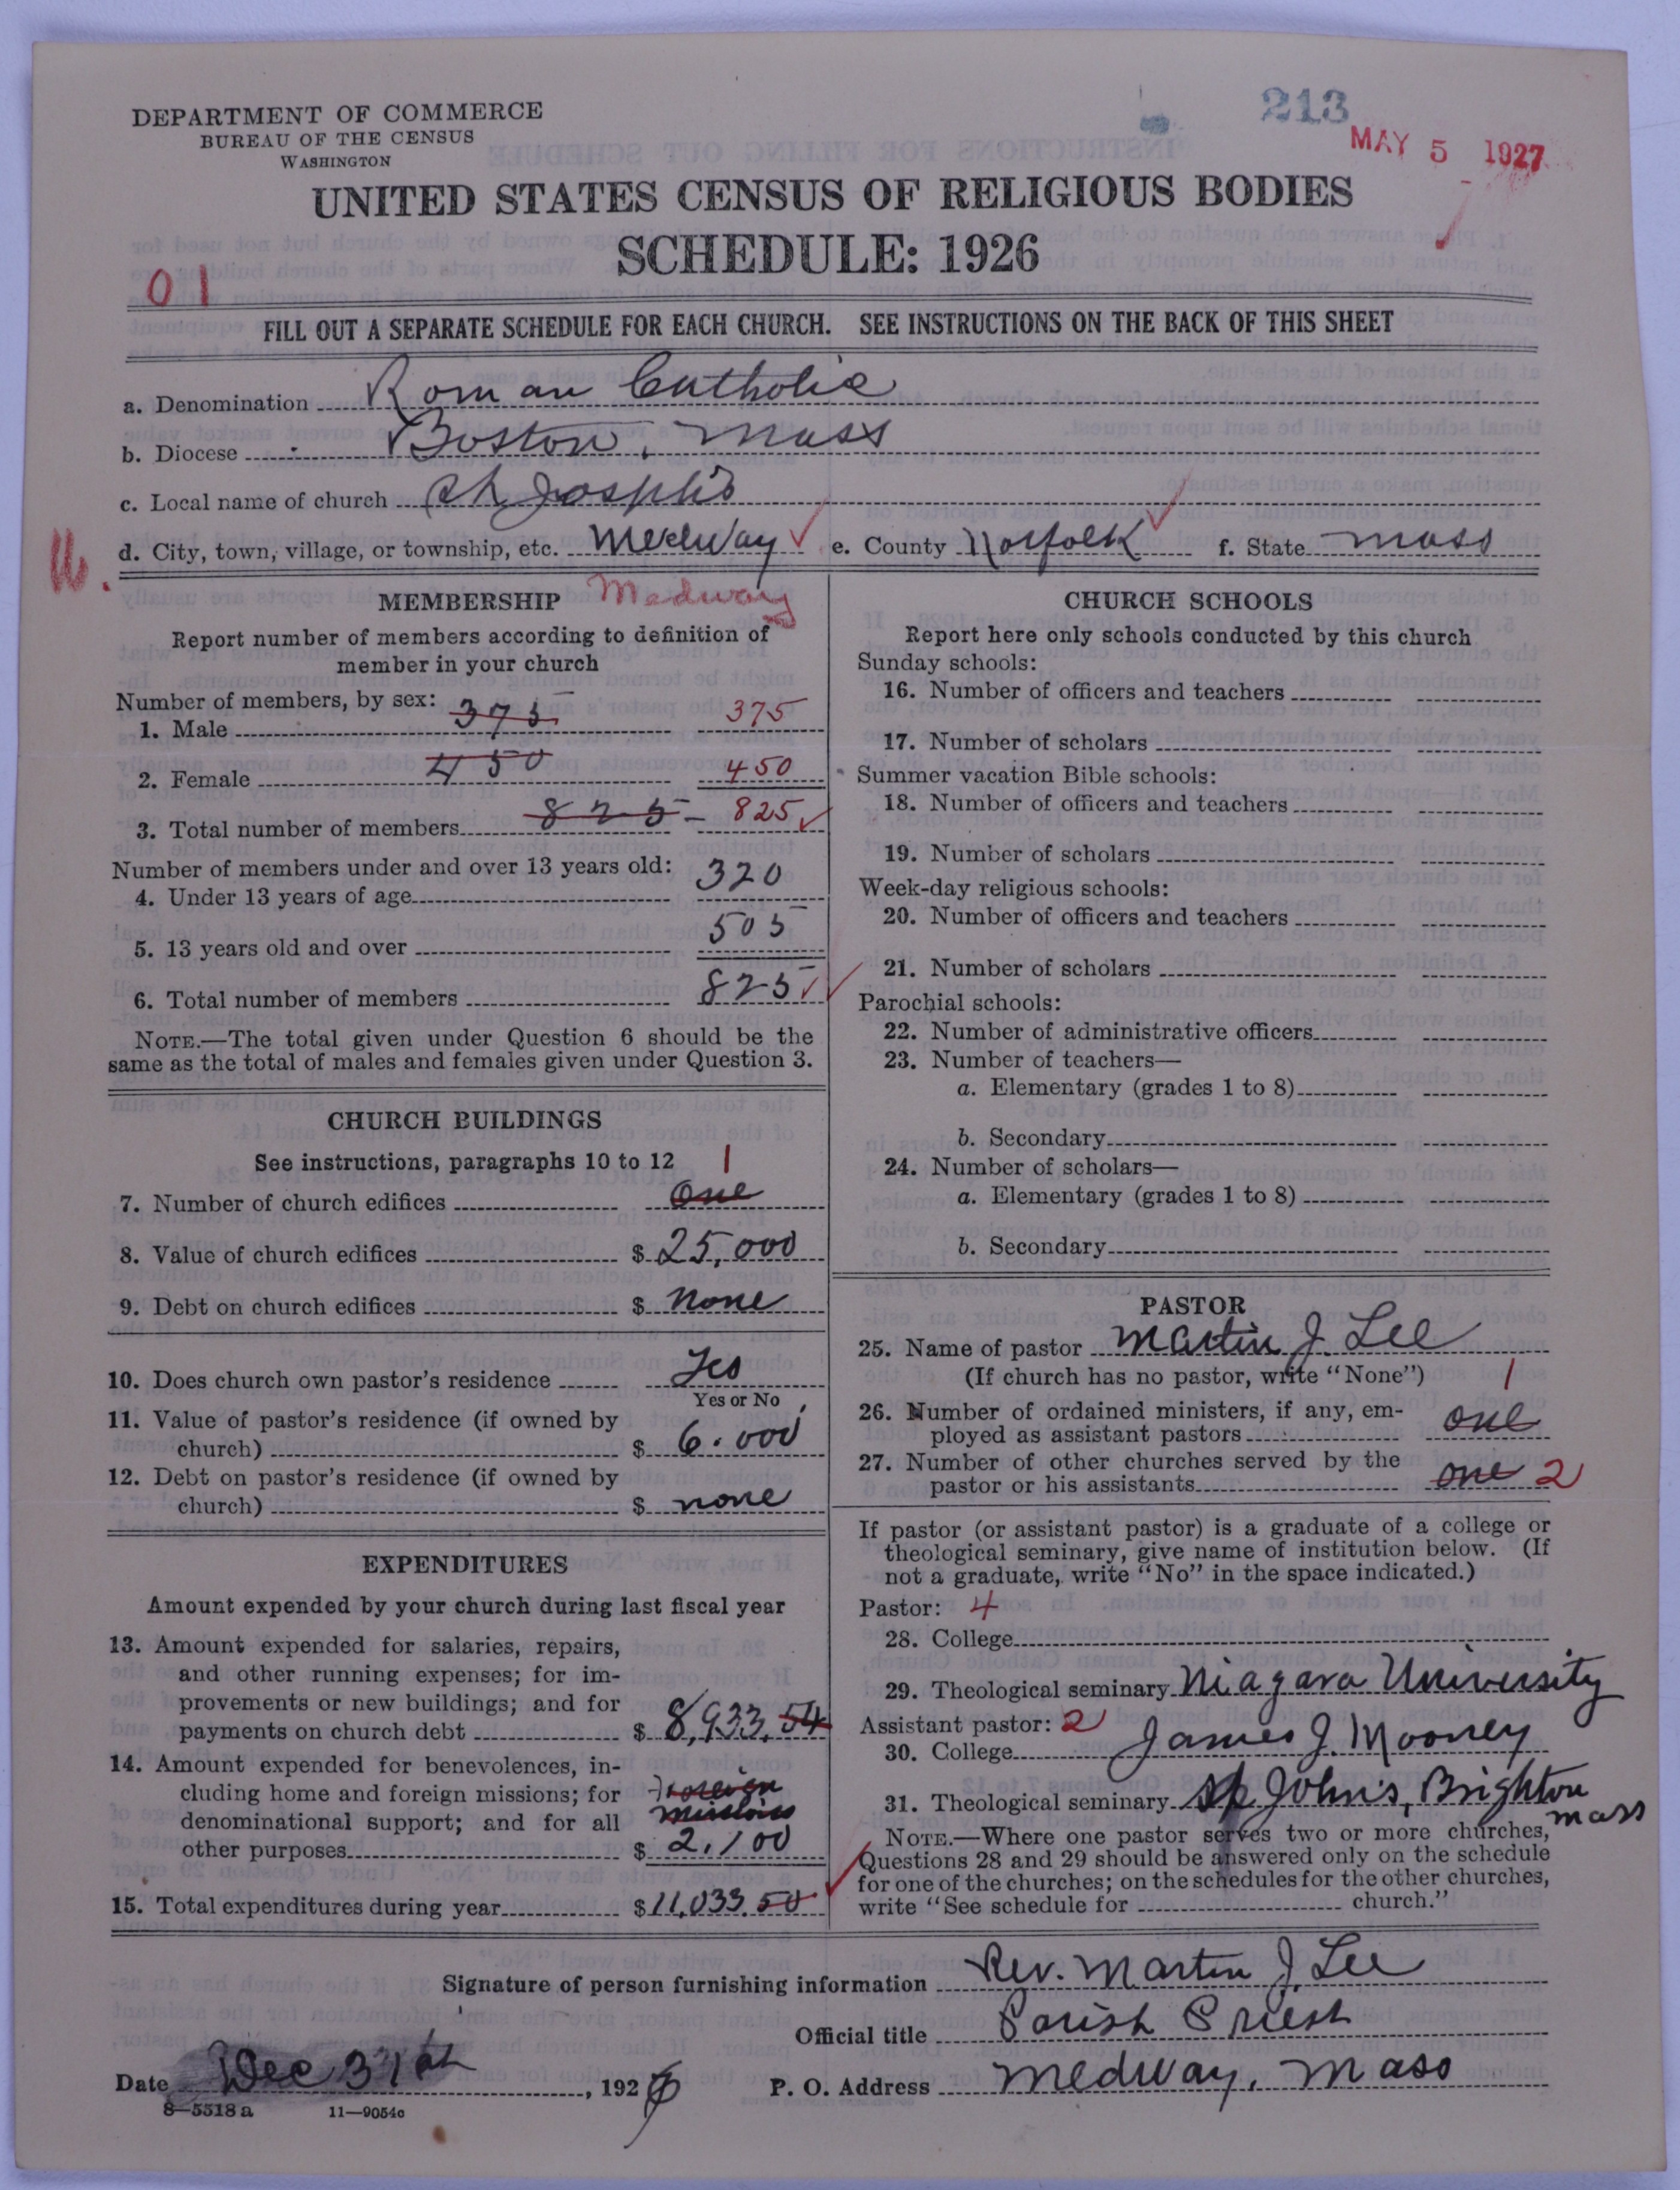 213
MAY 5 1927
DEPARTMENT OF COMMERCE
BUREAU OF THE CENSUS
WASHINGTON
UNITED STATES CENSUS OF RELIGIOUS BODIES
SCHEDULE: 1926
01
FILL OUT A SEPARATE SCHEDULE FOR EACH CHURCH. SEE INSTRUCTIONS ON THE BACK OF THIS SHEET
a. Denomination Roman Catholic
b. Diocese Boston, Mass
c. Local name of church St Joseph's
d. City, town, village, or township, etc. Medway e. County Norfolk f. State Mass
Medway
MEMBERSHIP
Report number of members according to definition of
member in your church
Number of members, by sex:
1. Male 375 375
2. Female 450 450
3. Total number of members 825 825
Number of members under and over 13 years old:
4. Under 13 years of age 320
5. 13 years old and over 505
6. Total number of members 825
NOTE.—The total given under Question 6 should be the
same as the total of males and females given under Question 3.
CHURCH BUILDINGS
See instructions, paragraphs 10 to 12
7. Number of church edifices One 1
8. Value of church edifices $ 25,000
9. Debt on church edifices $ None
10. Does church own pastor's residence Yes
Yes or No
11. Value of pastor's residence (if owned by
church) $ 6.000
12. Debt on pastor's residence (if owned by
church) $ none
EXPENDITURES
Amount expended by your church during last fiscal year
13. Amount expended for salaries, repairs,
and other running expenses; for im-
provements or new buildings; and for
payments on church debt $ 8,933.54
14. Amount expended for benevolences, in-
cluding home and foreign missions; for Foreign
denominational support; and for all missions
other purposes $ 2,100
15. Total expenditures during year $ 11,033.50
CHURCH SCHOOLS
Report here only schools conducted by this church
Sunday schools:
16. Number of officers and teachers
17. Number of scholars
Summer vacation Bible schools:
18. Number of officers and teachers
19. Number of scholars
Week-day religious schools:
20. Number of officers and teachers
21. Number of scholars
Parochial schools:
22. Number of administrative officers
23. Number of teachers—
a. Elementary (grades 1 to 8)
b. Secondary
24. Number of scholars—
a. Elementary (grades 1 to 8)
b. Secondary
PASTOR
25. Name of pastor Martin J. Lee
(If church has no pastor, write "None") 1
26. Number of ordained ministers, if any, em-
ployed as assistant pastors one
27. Number of other churches served by the
pastor or his assistants one 2
If pastor (or assistant pastor) is a graduate of a college or
theological seminary, give name of institution below. (If
not a graduate, write "No" in the space indicated.)
Pastor: 4
28. College
29. Theological seminary Niagara University
Assistant pastor: 2
30. College James J. Mooney
31. Theological seminary St John's, Brighton
Mass
NOTE.—Where one pastor serves two or more churches,
Questions 28 and 29 should be answered only on the schedule
for one of the churches; on the schedules for the other churches,
write "See schedule for church."
Signature of person furnishing information Rev. Martin J. Lee
Official title Parish Priest
Date Dec 31st, 1926 P. O. Address Medway, Mass
8—5518a 11—9054c